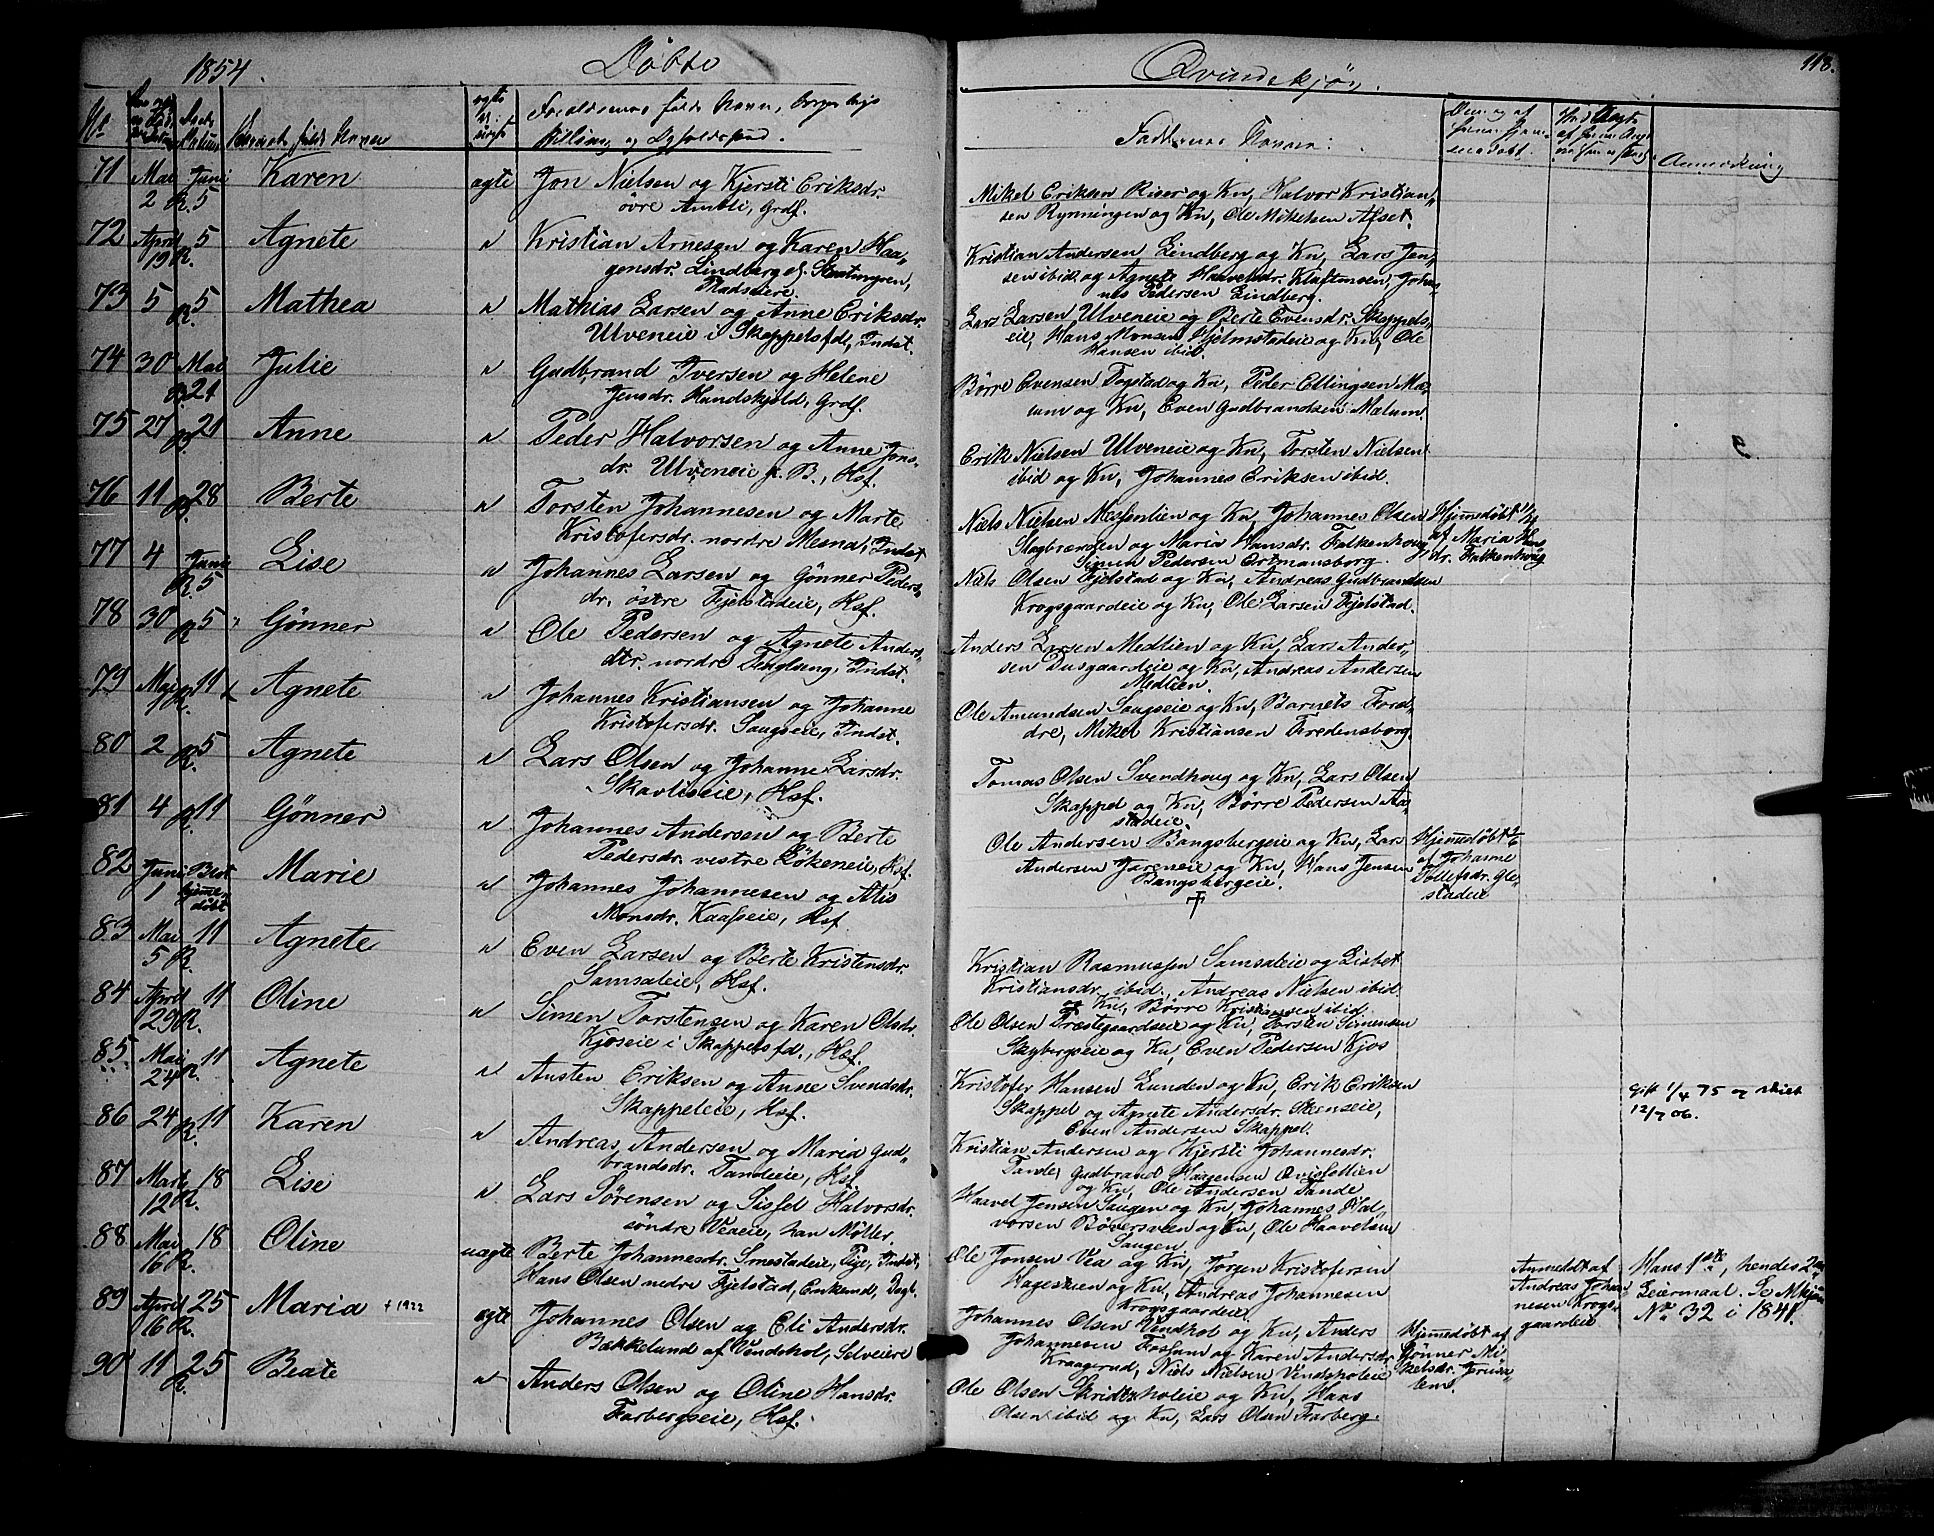 1854. Döbte Qvindekjön. 118.
No
Barnets fulde Navn
ægte el. uægte
Forældrenes fulde Navn, Borgerlige
Stilling og Opholdssted.
Faddernes Navne.
Anmerkning
71 Mai 2 R. Juni 5 Karen ægte Jon Nielsen og Kjersti Eriksdr.
övre Ambli, Grdf.
Mikel Eriksen Riser og Kn, Halvor Kristian-
sen Rynningen og Kn, Ole Mikelsen Afset.
72 April 19 R. 5 Agnete Kristian Arnesen og Karen Haa-
gensdr. Lindberg
Pladseiere.
Kristian Andersen Lindberg og Kn, Lars Jen-
sen ibid og Agnete Haavelsdr. Johan-
nes Pedersen Lindberg.
73 5 R. 5 Mathea Mathias Larsen og Anne Eriksdr.
Ulveneie i Skappelsfd, Indst.
Lars Larsen Ulveneie og Berte Evensdr. Skappels-
eie, Hans Monsen Hjelmstadeie og Kn, Ole
Hansen ibid.
74 30 R. Mai 21 Julie Gudbrand Iversen og Helene
Jensdr. Hundskjold, Grdf.
Börre Evensen Togstad og Kn, Peder Ellingsen Mæ-
lum og Kn, Even Gudbrandsen Mælum.
75 27 R. 21 Anne Peder Halvorsen og Anne Jons-
dr. Ulveneie p. B., Hsf.
Erik Nielsen Ulveneie og Kn, Torsten Nielsen
ibid og Kn, Johannes Eriksen ibid.
76 11 R. 28 Berte Torsten Johannesen og Marte
Kristofersdr. nordre Mesna, Indst.
Niels Nielsen Messenlien og Kn, Johannes Olsen
og Maria Hansdr. Falkenhoug
Simen Pedersen Ertmansborg.
Hjemmedöbt
af Maria Hans-
dr. Falkenhoug
77 4 R. Juni 5 Lise Johannes Larsen og Gönner Peders-
dr. östre Fjelstadeie, Hsf.
Niels Olsen Fjelstad og Kn, Andreas Gudbrandsen
Krogsgaardeie og Kn, Ole Larsen Fjelstad.
78 30 R. 5 Gönner Ole Pedersen og Agnete Anders-
dtr. nordre Tenglung, Indst.
Anders Larsen Medlien og Kn, Lars Ander-
sen Dusgaardeie og Kn, Andreas Andersen
Medlien.
79 Mai R. 11 Agnete Johannes Kristiansen og Johanne
Kristofersdr. Saugseie, Indst.
Ole Amundsen Saugseie og Kn, Barnets Foræl-
dre, Mikel Kristiansen Fredensborg.
80 2 R. 5 Agnete Lars Olsen og Johanne Larsdr.
Skavliseie, Hsf.
Tomas Olsen Svendhoug og Kn, Lars Olsen
Skappel og Kn, Börre Pedersen Aa-
stadeie.
81 4 R. 11 Gönner Johannes Andersen og Berte
Pedersdr. vestre Lökeneie, Hsf.
Ole Andersen Bangsbergeie og Kn, Lars
Andersen Jareneie og Kn, Hans Jensen
Bangsbergeie.
Hjemmedöbt
af Johanne
Tollefsdr. Gle-
stadeie
82 Juni 1 Blot hjemme-döbt Marie Johannes Johannesen og Alis
Monsdr. Kaasseie, Hsf.
†
83 Mai 5 R. 11 Agnete Even Larsen og Berte Kristensdr.
Samsaleie, Hsf.
Kristian Rasmussen Samsaleie og Lisbet
Kristiansdr. ibid., Andreas Nielsen ibid.
og Kn, Börre Kristiansen ibid.
84 April 29 R. 11 Oline Simen Torstensen og Karen Olsdr.
Kjoseie i Skappelsfd., Hsf.
Ole Olsen Præstegaardseie og Kn, Torsten Simensen
Skybergseie og Kn, Even Pedersen Kjos
85 Mai 24 R. 11 Agnete Austen Eriksen og Anne Svendsdr.
Skappeleie, Hsf.
Kristofer Hansen Lunden og Kn, Erik Eriksen
Skappel og Agnete Andersdr. Stenseie,
Even Andersen Skappel.
gift 1/4 75 og skilt
12/7 06.
86 24 R. 11 Karen Andreas Andersen og Maria Gud-
brandsdr. Tandeeie, Hsf.
Kristian Andersen og Kjersti Johannesdr.
Tande, Gudbrand Haagensen
og Kn, Ole Andersen Tande
87 Marts 12 R. 18 Lise Lars Sörensen og Sissel Halvorsdr.
söndre Veaeie, han Möller.
Haavel Jensen Saugen og Kn, Johannes Hal-
vorsen Böversveen og Kn, Ole Haavelsen
Saugen.
88 Mai 16 R. 18 Oline uægte Berte Johannesdr. Smestadeie, Pige, Indst,
Hans Olsen nedre Fjelstad, Enkemd, Dagl.
Ole Jonsen Vea og Kn, Jörgen Kristofersen
Hagestuen og Kn, Andreas Johannesen
Krogsgaardeie.
Anmeldt af
Andreas Johan-
nesen Krogs-
gaardeie
Hans 1ste, hendes 2det
Leiermaal. Se Mkjön
No 32 i 1841.
89 April 16 R. 25 Maria † 1922 ægte Johannes Olsen og Eli Andersdr.
Bækkelund af Vendkol, Selveiere
Johannes Olsen Vendkol og Kn, Anders
Johannesen Fossum og Karen Andersdr.
Kraagerud, Niels Nielsen Vendkoleie
Hjemmedöbt af
Gönner Mi-
kelsdr. Jerusa-
lem.
90 11 R. 25 Beate Anders Olsen og Oline Hansdr.
Farbergseie, Hsf.
Ole Olsen Skridsholeie og Kn, Hans
Olsen ibid og Kn, Lars Olsen Farberg.